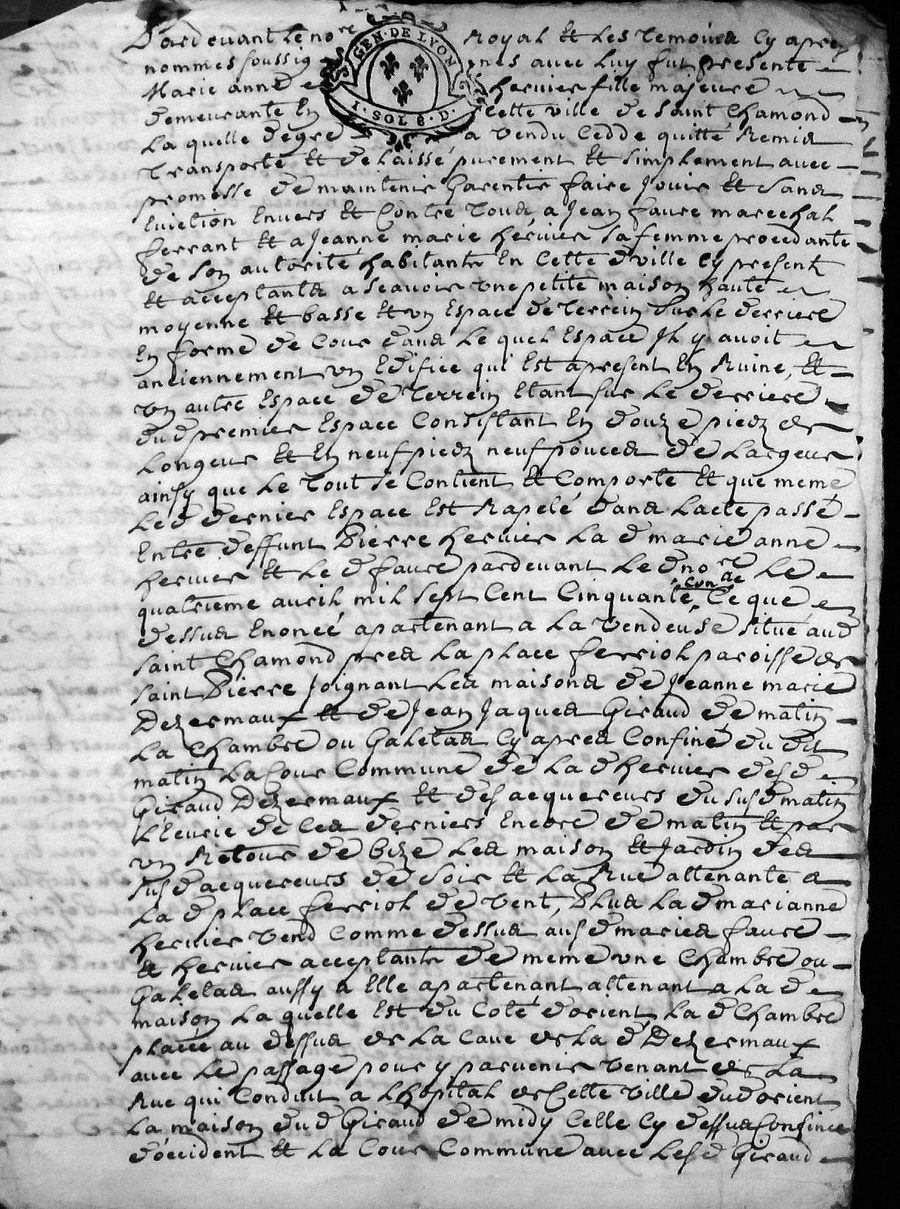 Pardevant le no.re Royal Et Les Temoins Cy apres
GEN. DE LYON
I. SOL 8. D.
nommes soussignes avec Luy fut presente
Marie anne hervier fille majeure
demeurante En Cette ville de Saint Chamond
La quelle de gre a vendu Cedde quitté Remis
Transporté Et delaissé purement Et simplement avec
promesse de maintenir Garentir faire Jouir Et Sans
Eviction Envers Et Contre Tous a Jean faure marechal
ferrant Et a Jeanne marie hervier sa femme procedante
de son autorité habitants En Cette d ville Cy present
Et acceptants a scavoir une petite maison haute
moyenne Et basse Et un Espace de Terrein sur Le derriere
En forme de Cour dans Le quel Espace Il y avoit
anciennement un Edifice qui Est apresent En Ruine, Et
un autre Espace de Terrein Etant sur Le derriere
dud premier Espace Consistant En douze piedz de
Longeur Et En neuf piedz neuf pouces de Largeur
ainsy que Le Tout se Contient Et Comporte Et que meme
Led dernier Espace Est Rapelé dans Lacte passé
Entre deffunt Pierre hervier La d marie anne
hervier Et Le d faure pardevant Le d no.re Le
quatrieme avril mil sept Cent Cinquante, Ce que
dessus Enoncé apartenant a La vendeuse situé aud
Saint Chamond pres La place ferriol paroisse de
Saint Pierre Joignant Les maisons de Jeanne marie
Dezermaux Et de Jean Jaques Giraud de matin
La Chambre ou Galetas Cy apres Confiné du dit
matin La Cour Commune de La d hervier des d
Giraud Dezermaux Et des acquereurs du susd matin
L Ecurie de Ces derniers Encore de matin Et par
un Retour de bize Les maison Et Jardin des
susd acquereurs de soir Et La Rue attenante a
La d place ferriol de vent, Plus La d marianne
hervier vend Comme dessus aus d maries faure
Et hervier acceptants de meme une Chambre ou
Galetas aussy a Elle apartenant attenant a La d
maison La quelle Est du Coté d orient La d Chambre
placée au dessus de La Cave de La d Dezermaux
avec Le passage pour y parvenir venant de La
Rue qui Conduit a Lhopital de Cette ville du d orient
La maison du d Giraud de midy Celle Cy dessus Confinée
d occident Et La Cour Commune avec Les d Giraud